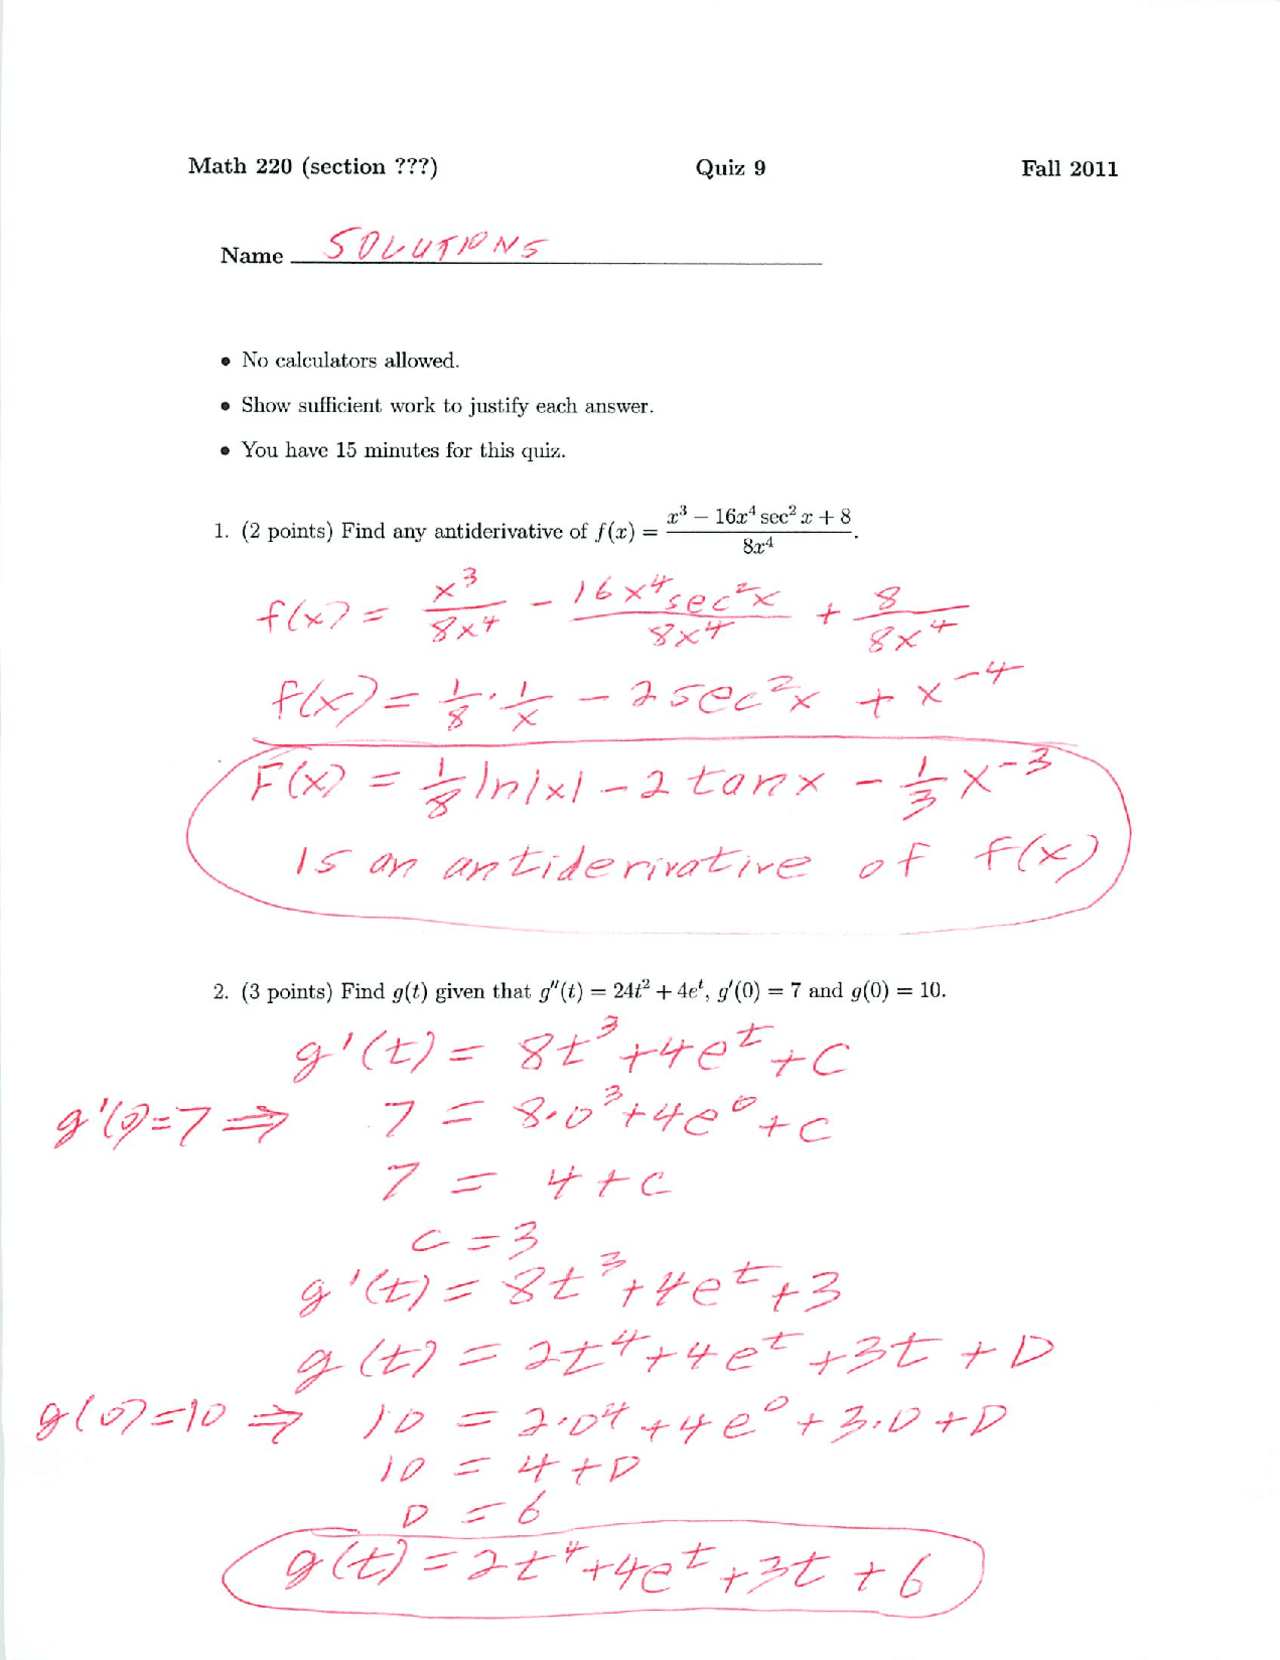 Math 220 (section ???) Quiz 9 Fall 2011
Name SOLUTIONS
• No calculators allowed.
• Show sufficient work to justify each answer.
• You have 15 minutes for this quiz.
1. (2 points) Find any antiderivative of f(x) = (x³ − 16x⁴ sec² x + 8)/(8x⁴).
f(x) = x³/(8x⁴) − 16x⁴sec²x/(8x⁴) + 8/(8x⁴)
f(x) = 1/8 · 1/x − 2sec²x + x⁻⁴
F(x) = 1/8 ln|x| − 2 tan x − 1/3 x⁻³
is an antiderivative of f(x)
2. (3 points) Find g(t) given that g″(t) = 24t² + 4eᵗ, g′(0) = 7 and g(0) = 10.
g'(t) = 8t³ + 4eᵗ + C
g'(0)=7 ⇒ 7 = 8·0³ + 4e⁰ + C
7 = 4 + C
C = 3
g'(t) = 8t³ + 4eᵗ + 3
g(t) = 2t⁴ + 4eᵗ + 3t + D
g(0)=10 ⇒ 10 = 2·0⁴ + 4e⁰ + 3·0 + D
10 = 4 + D
D = 6
g(t) = 2t⁴ + 4eᵗ + 3t + 6